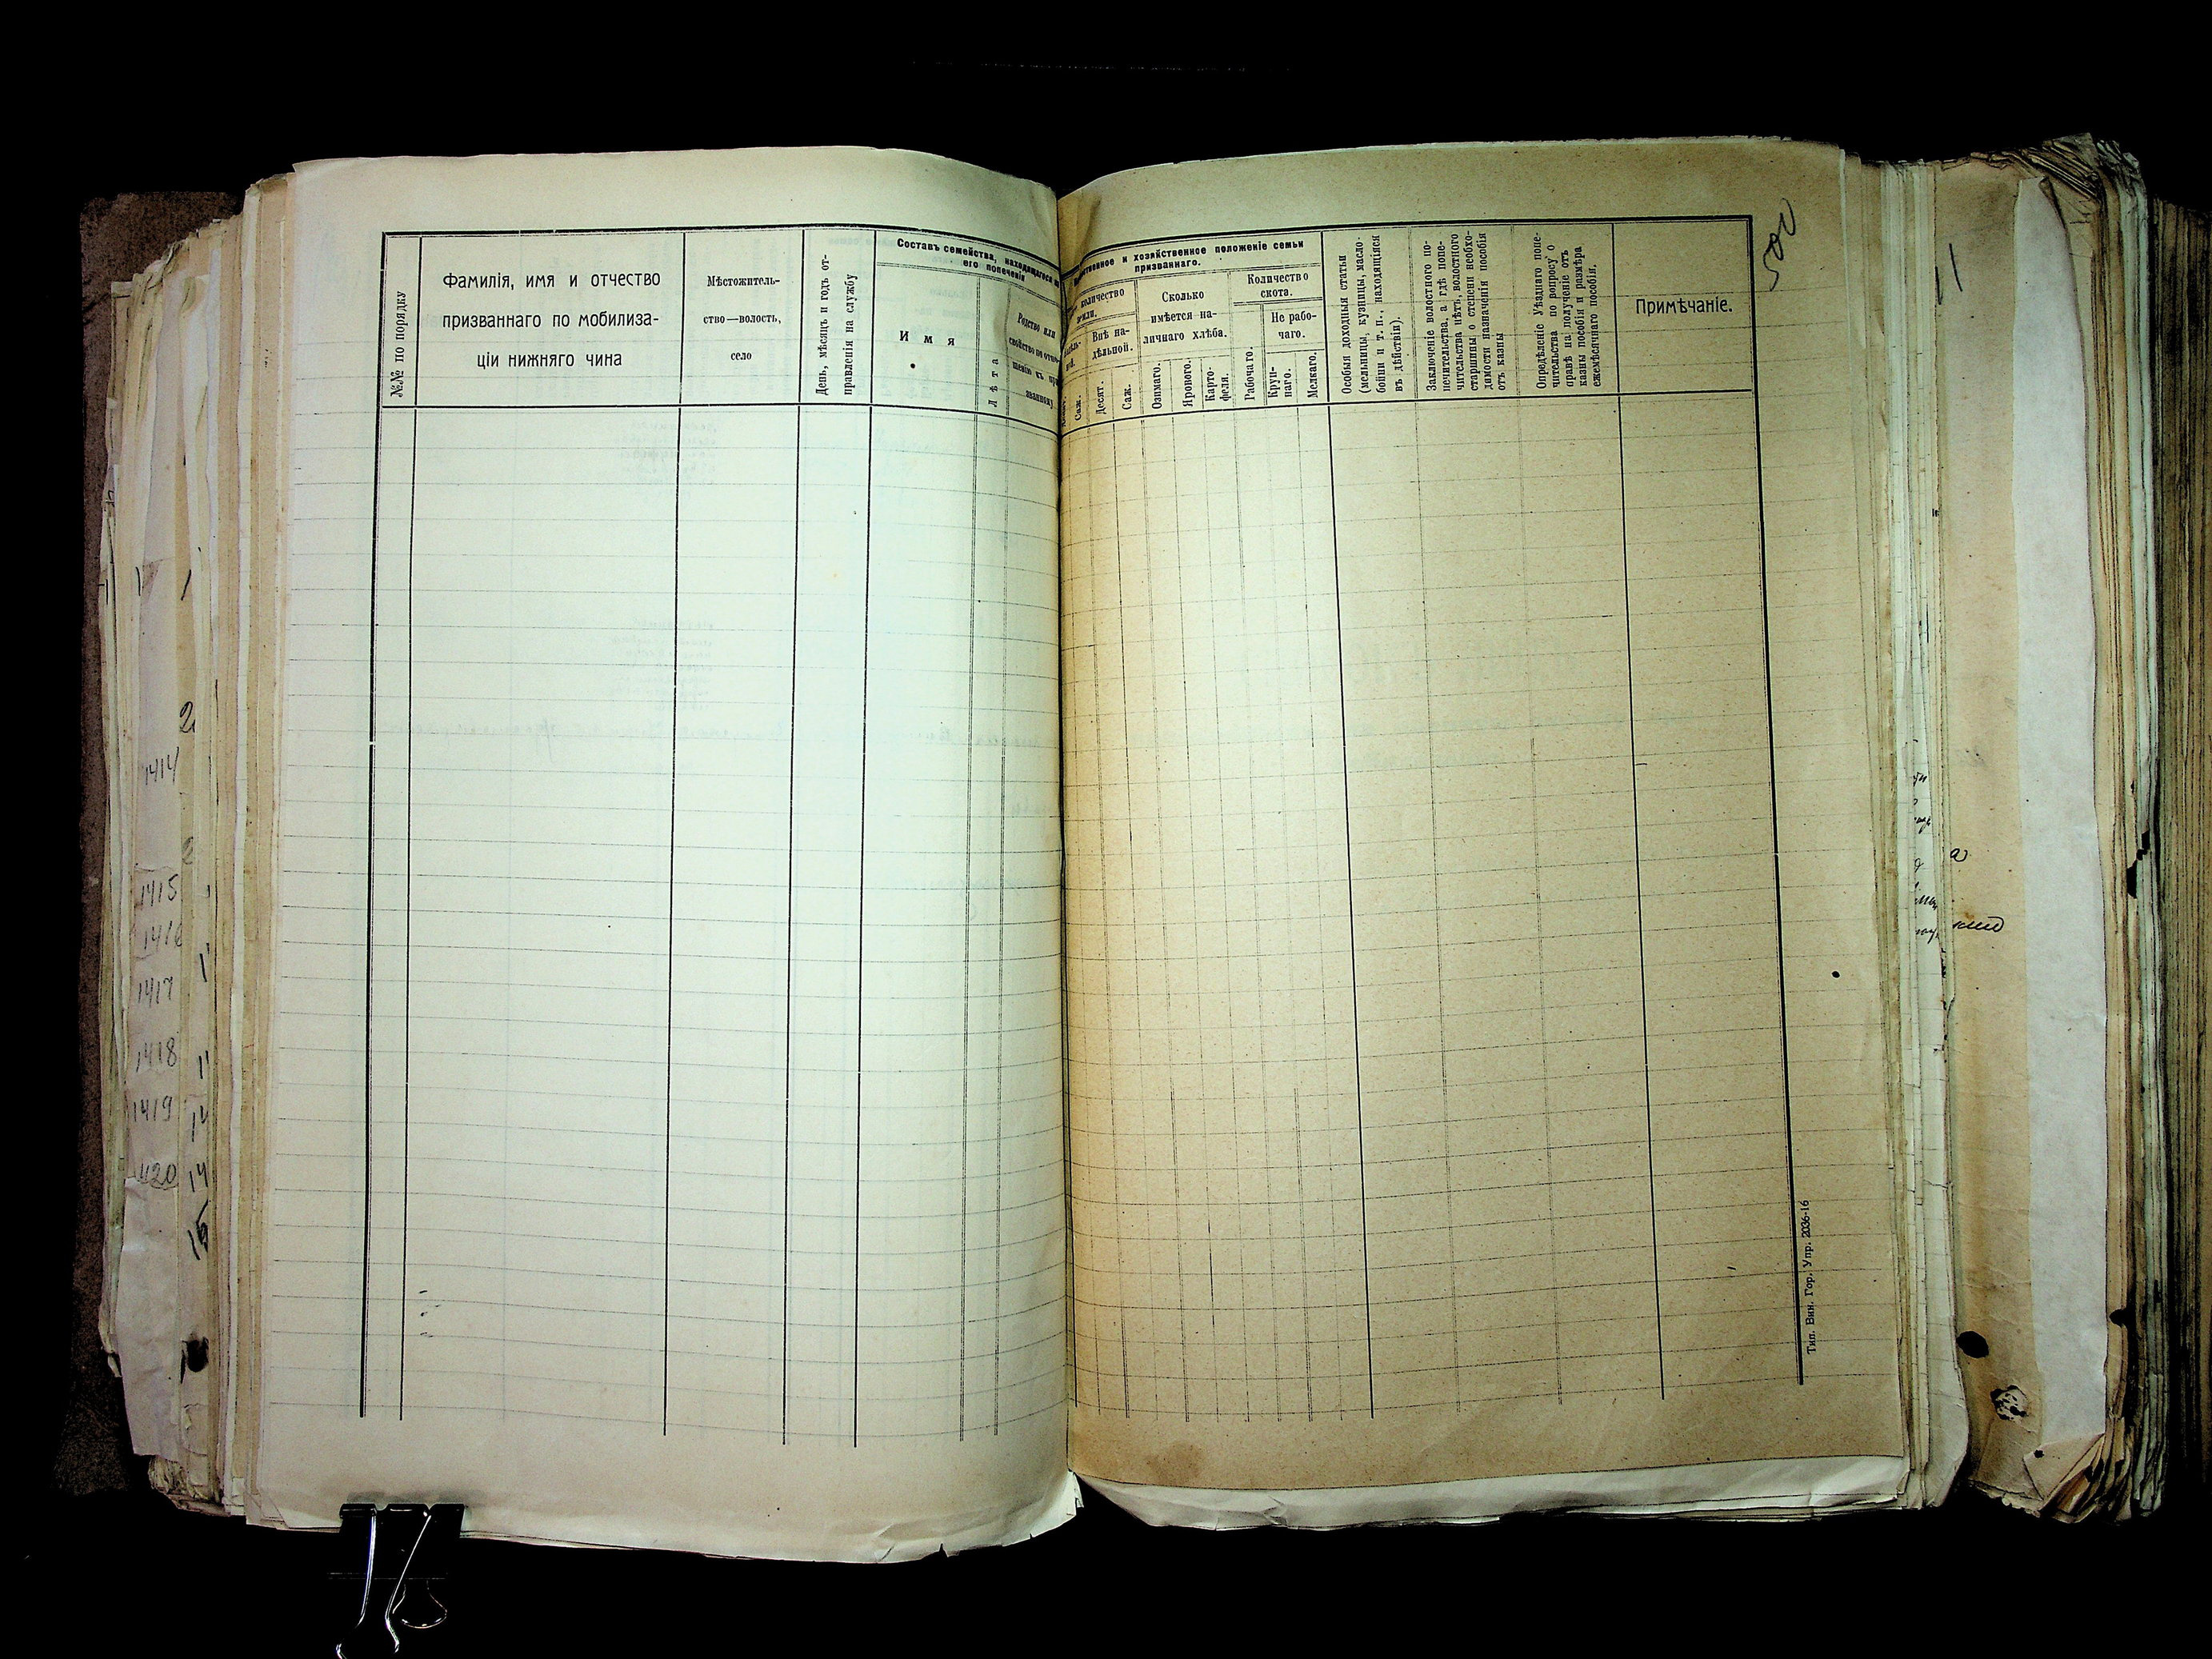 №№ по порядку
Фамилія, имя и отчество
призваннаго по мобилиза-
ціи нижняго чина
Мѣстожитель-
ство—волость,
село
День, мѣсяцъ и годъ от-
правленія на службу
Составъ семейства, находящагося на
его попеченіи
И м я
Лѣта
Родство или
свойство по отно-
шенію къ при-
званному
и хозяйственное положеніе семьи
призваннаго.
количество
земли.
Внѣ на-
дѣльной.
Саж.
Десят.
Саж.
Сколько
имѣется на-
личнаго хлѣба.
Озимаго.
Ярового.
Карто-
феля.
Количество
скота.
Рабочаго.
Не рабо-
чаго.
Круп-
наго.
Мелкаго.
Особыя доходныя статьи
(мельницы, кузницы, масло-
бойни и т. п., находящіяся
въ дѣйствіи).
Заключеніе волостного по-
печительства, а гдѣ попе-
чительства нѣтъ, волостного
старшины о степени необхо-
димости назначенія пособія
отъ казны
Опредѣленіе Уѣзднаго попе-
чительства по вопросу о
правѣ на полученіе отъ
казны пособія и размѣра
ежемѣсячнаго пособія.
Примѣчаніе.
500
Тип. Вин. Гор. Упр. 2036-16
1414
1415
1416
1417
1418
1419
1420